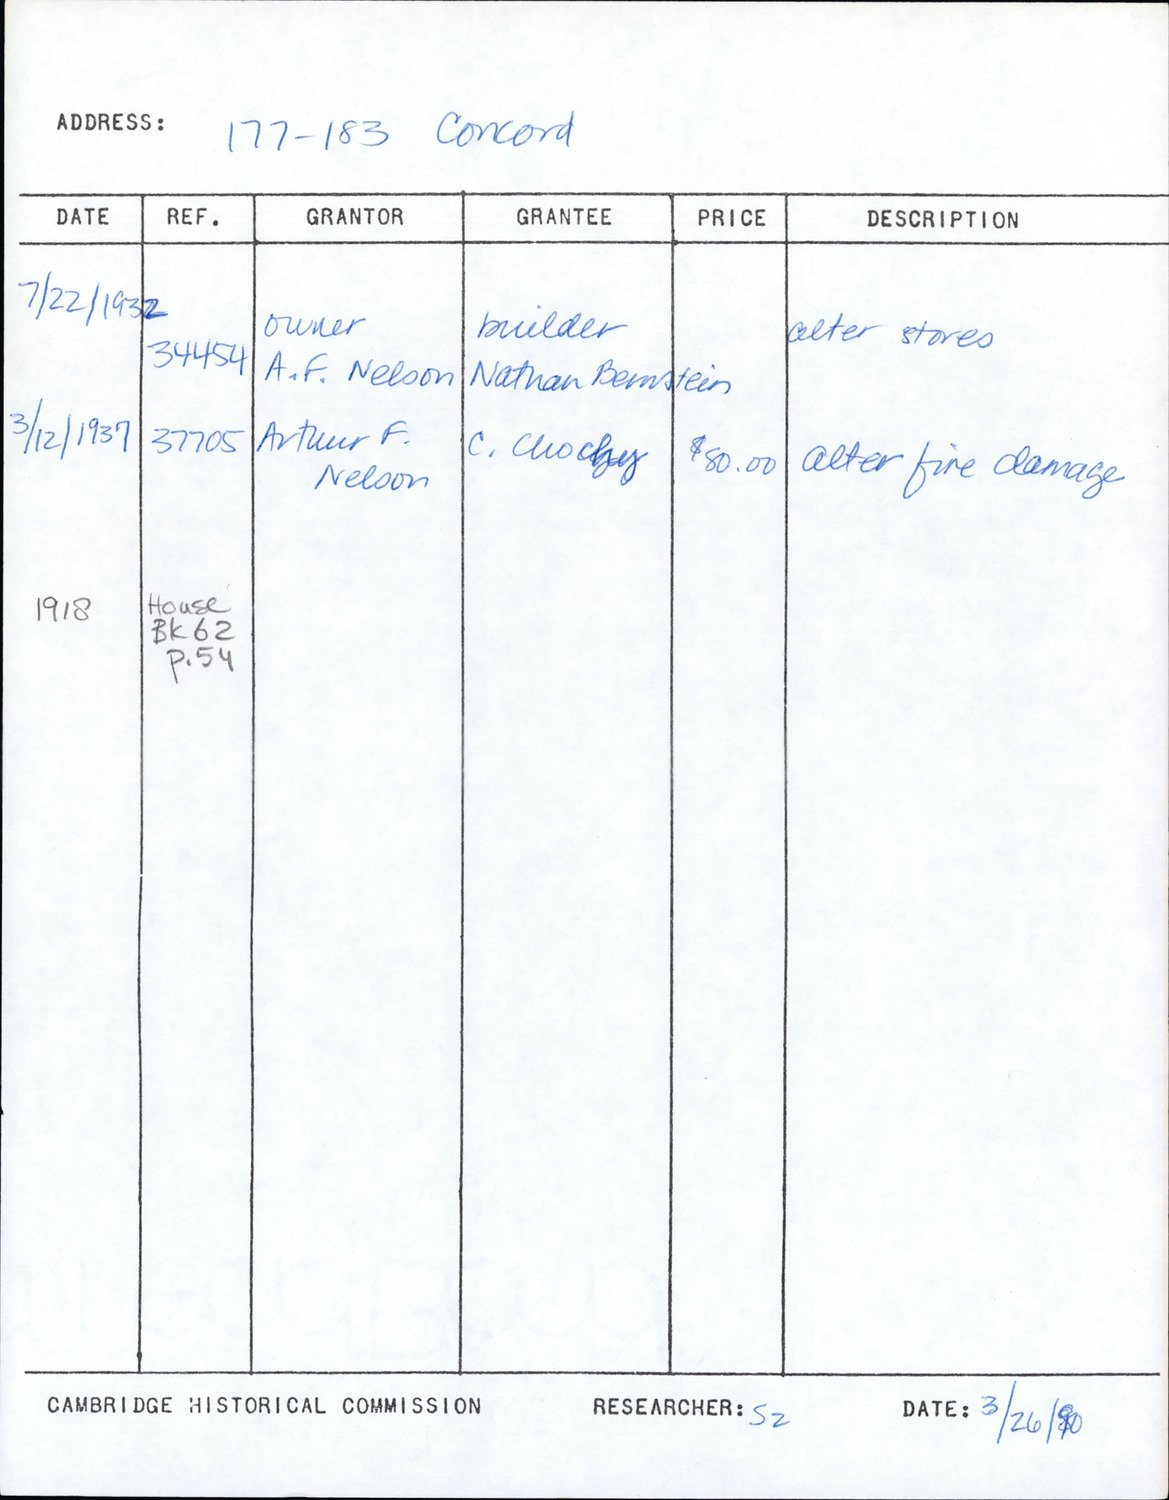 ADDRESS: 177-183 Concord
DATE REF. GRANTOR GRANTEE PRICE DESCRIPTION
7/22/1932 owner builder alter stores
34454 A.F. Nelson Nathan Bernstein
3/12/1937 37705 Arthur F. C. $80.00 alter fire damage
Nelson
1918 House
Bk 62
p.54
CAMBRIDGE HISTORICAL COMMISSION RESEARCHER: SZ DATE: 3/26/90